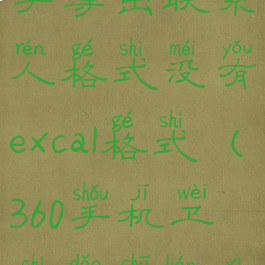 导出联系
rén gé shì méi yǒu
人格式没有
gé shì
excal格式（
shǒu jī wèi
360手机卫